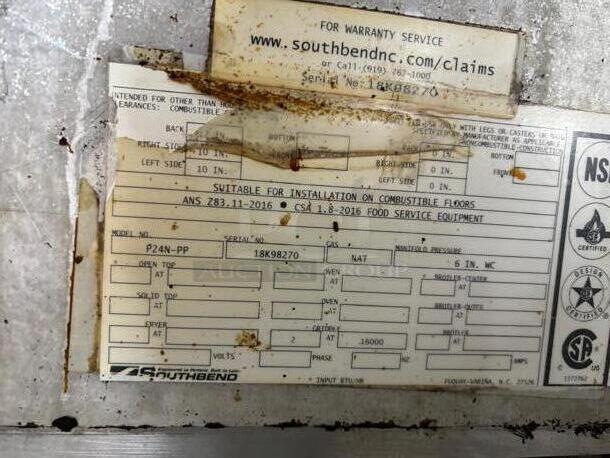 FOR WARRANTY SERVICE
www.southbendnc.com/claims
or Call (919) 762-1000
Serial No: 18K98270
INTENDED FOR OTHER THAN
CLEARANCES: COMBUSTIBLE
ONLY WITH LEGS OR CASTERS OR
MANUFACTURER AS APPLICABLE
NONCOMBUSTIBLE CONSTRUCTION
BACK IN. BOTTOM 0 IN. BOTTOM
RIGHT SIDE 10 IN. RIGHT SIDE 0 IN. FRONT
LEFT SIDE 10 IN. LEFT SIDE 0 IN.
SUITABLE FOR INSTALLATION ON COMBUSTIBLE FLOORS
ANS Z83.11-2016 • CSA 1.8-2016 FOOD SERVICE EQUIPMENT
MODEL NO. SERIAL NO. GAS MANIFOLD PRESSURE
P24N-PP 18K98270 NAT 6 IN. WC
OPEN TOP AT OVEN AT BROILER-CENTER AT
SOLID TOP AT OVEN AT BROILER-OUTG AT
FRYER AT 2 GRIDDLE AT 16000 BROILER AT
VOLTS PHASE HZ AMPS
SOUTHBEND
INPUT BTU/HR
FUQUAY-VARINA, N.C. 27526
NSF
CERTIFIED
DESIGN
CERTIFIED
C US